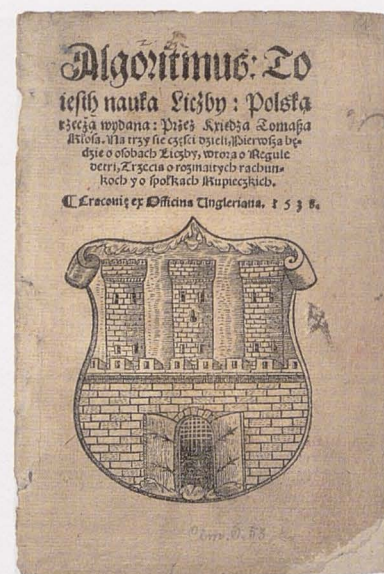 Algoritmus: To
iesth nauka Liczby: Polską
rzeczą wydana: Przez Księdza Tomasza
Kłosa. Na trzy sie części dzieli, Pierwsza bę-
dzie o osobach Liczby, wtora o Regule
detri, Trzecia o rozmaitych rachun-
koch y o społkach Kupieckich.
Cracovię ex Officina Ungleriana. 1538.